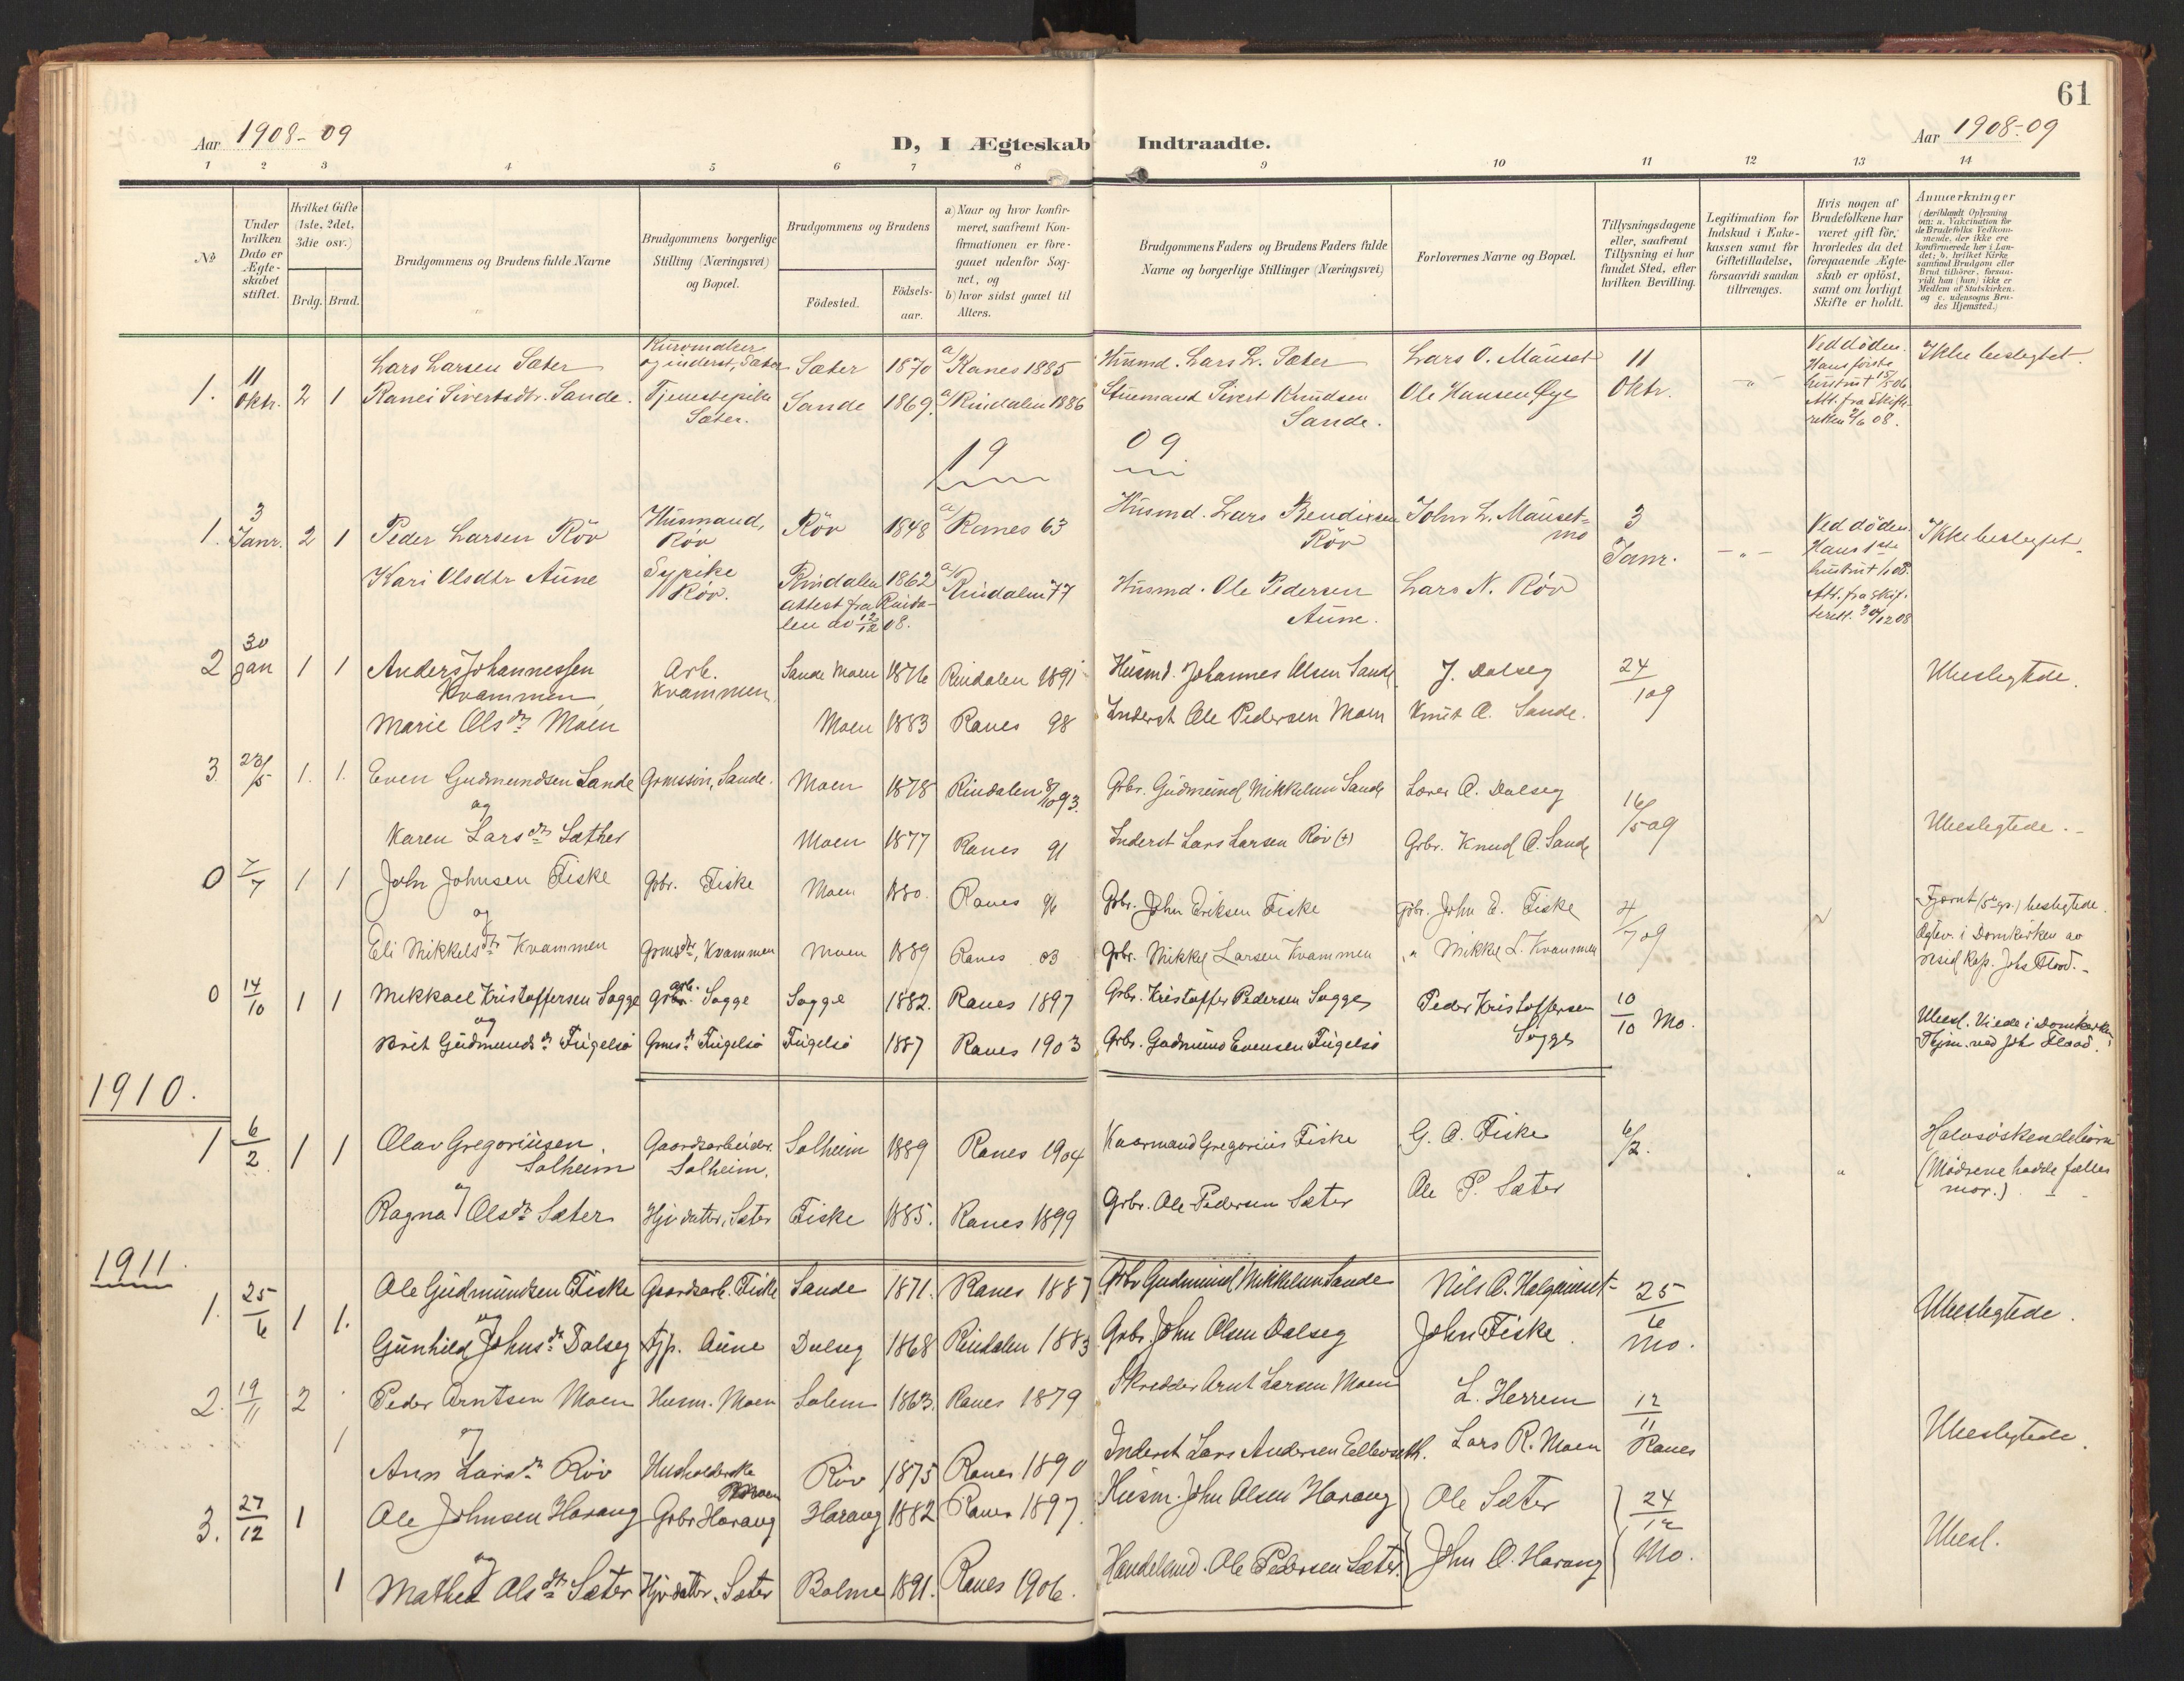 61
Aar 1908-09
D, I Ægteskab Indtraadte.
Aar 1908-09
1 2 3 4 5 6 7 8 9 10 11 12 13 14
No
Under hvilken Dato er Ægteskabet stiftet.
Hvilket Gifte (1ste, 2det, 3die osv.)
Brdg. Brud.
Brudgommens og Brudens fulde Navne
Brudgommens borgerlige Stilling (Næringsvei) og Bopæl.
Brudgommens og Brudens
Födested.
Födsels-aar.
a) Naar og hvor konfirmeret, saafremt Konfirmationen er foregaaet udenfor Sognet, og
b) hvor sidst gaaet til Alters.
Brudgommens Faders og Brudens Faders fulde Navne og borgerlige Stillinger (Næringsvei)
Forlovernes Navne og Bopæl.
Tillysningsdagene eller, saafremt Tillysning ei har fundet Sted, efter hvilken Bevilling.
Legitimation for Indskud i Enkekassen samt for Giftetilladelse, forsaavidt saadan tiltrænges.
Hvis nogen af Brudefolkene har været gift för, hvorledes da det foregaaende Ægteskab er oplöst, samt om lovligt Skifte er holdt.
Anmærkninger
(deriblandt Oplysning om: a. Vakcination for de Brudefolks Vedkommende, der ikke ere konfirmerede her i Landet; b. hvilket Kirkesamfund Brudgom eller Brud tilhörer, forsaavidt han (hun) ikke er Medlem af Statskirken, og c. udensogns Brudes Hjemsted.)
1. 11 Oktr. 2 1 Lars Larsen Sæter Kurvmaker og inderst, Sæter Sæter 1870 a/ Ranes 1885 Husmd. Lars L. Sæter Lars O. Mauset 11 Oktr. -„- Ved döden. Hans förste hustru † 15/5 06. Att. fra Skifteretten 9/6 08. Ikke beslegtet.
Ranei Sivertsdtr. Sande. Tjenestepike Sæter. Sande 1869. a/ Rindalen 1886 Stuemand Sivert Knudsen Sande. Ole Hansen Øye
19 09
1. 3 Janr. 2 1 Peder Larsen Röv Husmand, Röv Röv 1848 a/ Ranes 63 Husmd. Lars Bendixsen Röv John L. Mausetmo 3 Janr. -„- Ved döden. Hans 1ste hustru † 08. Att. fra Skifterett. 30/12 08 Ikke beslegtet.
Kari Olsdtr Aune Sypike Röv. Rindalen 1862 a/ Rindalen 77 Husmd. Ole Pedersen Aune. Lars N. Röv
attest fra Rindalen av 12/12 08.
2 30 Jan 1 1 Anders Johannessen Kvammen Arb. Kvammen Sande Moen 1876 Rindalen 1891 Husmd. Johannes Olsen Sande J. Dalseg 24/1 09 Ubeslegtede.
Marie Olsdtr Moen Moen 1883 Ranes 98 Inderst Ole Pedersen Moen Knut O. Sande.
3. 23/5 1. 1. Even Gudmundsen Sande Grmssøn, Sande. Moen 1878 Rindalen 8/10 93. Grbr. Gudmund Mikkelsen Sande Lars O. Dalseg 16/5 09 Ubeslegtede.
og
Karen Larsdtr Sæther Moen 1877 Ranes 91 Inderst Lars Larsen Röv (+) Grbr. Knud O. Sande
0 7/7 1 1 John Johnsen Fiske Gbr. Fiske Moen 1880. Ranes 96 Grbr. John Eriksen Fiske Gbr. John E. Fiske 4/7 09 Fjernt beslegtede.
og
Eli Mikkelsdtr Kvammen Grmsdtr, Kvammen Moen 1889 Ranes 03 Grbr. Mikkel Larsen Kvammen „ Mikkel L. Kvammen Ægtev. i Domkirken av resid. Kap. Johs Flood.
0 14/10 1 1 Mikkael Kristoffersen Sogge Grbr. Sogge Sogge 1882. Ranes 1897 Grbr. Kristoffer Pedersen Sogge Peder Kristoffersen Sogge 10/10 Mo. Ubesl. Viede i Domkirken Thjm. ved Johs Flood.
og
Brit Gudmundsdtr Fugelsö Grmsdtr Fugelsö Fugelsö 1887 Ranes 1903 Grbr. Gudmund Evensen Fugelsö
1910.
1 6/2 1 1 Olav Gregoriussen Solheim Gaardsarbeider. Solheim. Solheim 1889 Ranes 1904 Kaarmand Gregorius Fiske G. O. Fiske 6/2. Halvsöskendebörn (Mödrene hadde fælles mor.)
og
Ragna Olsdtr Sæter Hjv. datter, Sæter Fiske 1885. Ranes 1899 Grbr. Ole Pedersen Sæter Ole P. Sæter
1911.
1. 25/6 1 1. Ole Gudmundsen Fiske Gaardsarb. Fiske Sande 1871. Ranes 1887 Grbr Gudmund Mikkelsen Sande Nils O. Halgunset 25/6 Mo. Ubeslegtede.
og
Gunhild Johnsdtr Dalseg Tjp. Aune Dalseg 1868 Rindalen 1883 Grbr. John Olsen Dalseg John Fiske.
2. 19/11 2 Peder Arntsen Moen Husm. Moen Solem 1863. Ranes 1879 Skredder Arnt Larsen Moen L. Herrem 12/11 Ranes Ubeslegtede.
og
1 Ann Larsdtr Röv Husholderske Moen Röv 1875 Ranes 1890 Inderst Lars Andersen Lars R. Moen
3. 27/12 1 Ole Johnsen Harang Grbr Harang Harang 1882 Ranes 1897. Husm. John Olsen Harang Ole Sæter 24/12 Mo. Ubesl.
og
1 Mathea Olsdtr Sæter Hjv. datter. Sæter Bolme 1891. Ranes 1906. Handelsmd. Ole Pedersen Sæter. John O. Harang